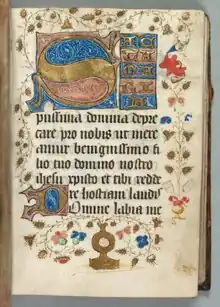 S
piissima domina depre
care pro nobis ut mere
amur benignissimo fi
lio tuo domino nostro
ihesu xpisto et tibi redde
re hostiam laudis
Domine labia me